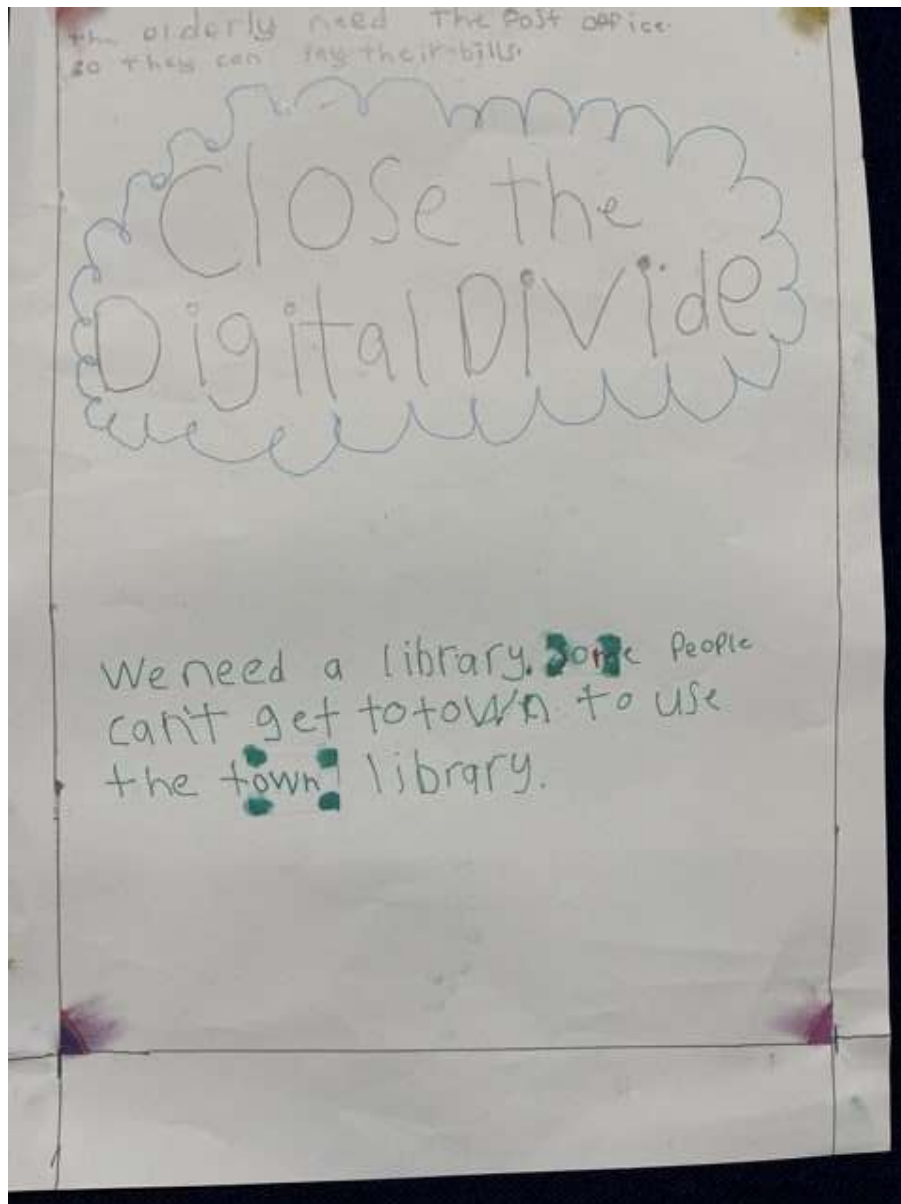 the olderly need The Post office.
so they can pay their bills.
Close the
Digital Divide
We need a library. Some people
can't get to town to use
the town library.